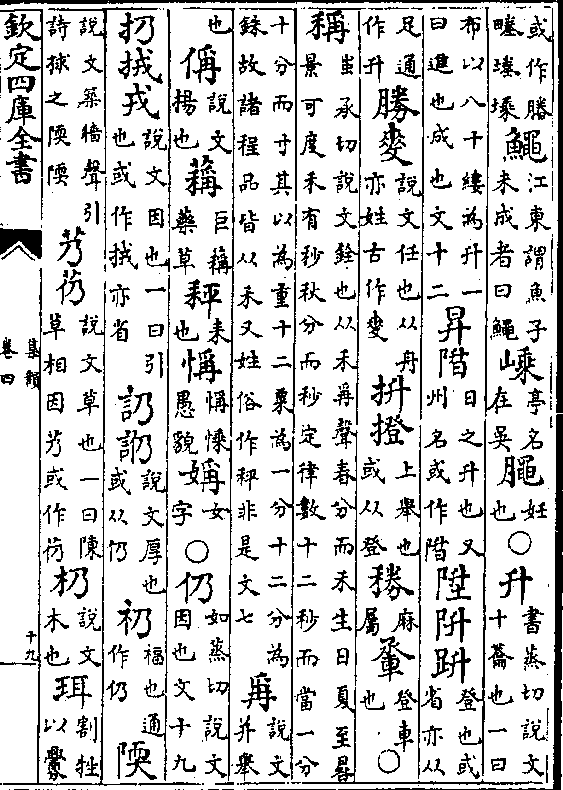 或作塍
畻堘塖
鱦
江東謂魚子
未成者曰鱦
嵊
亭名
在吳
妊
也
○升
書蒸切說文
十龠也一曰
布以八十縷為升一
曰進也成也文十二
昇陹
日之升也又
州名或作陹
陞阩䟫
登也或
省亦从
足通
作升
勝夌
說文任也从舟
亦姓古作夌
抍撜
上舉也
或从登
麻
屬
登車
也
○
稱
蚩承切說文銓也从禾爯聲春分而禾生日夏至晷
景可度禾有秒秋分而秒定律數十二秒而當一分
十分而寸其以為重十二粟為一分十二分為
銖故諸程品皆从禾又姓俗作秤非是文七
爯
說文
并舉
也
偁
說文
揚也
藥草
秤
耒
也
愚貌
女
字
○仍
如蒸切說文
因也文十九
扔㧡戎
說文因也一曰引
也或作㧡亦省
訒䚮
說文厚也
或从仍
礽
福也通
作仍
陾
說文築牆聲引
詩捄之陾陾
艿芿
說文草也一曰陳
草相因艿或作芿
杒
說文
木也
珥
割牲
以釁
欽定四庫全書
集韻
卷四
十九